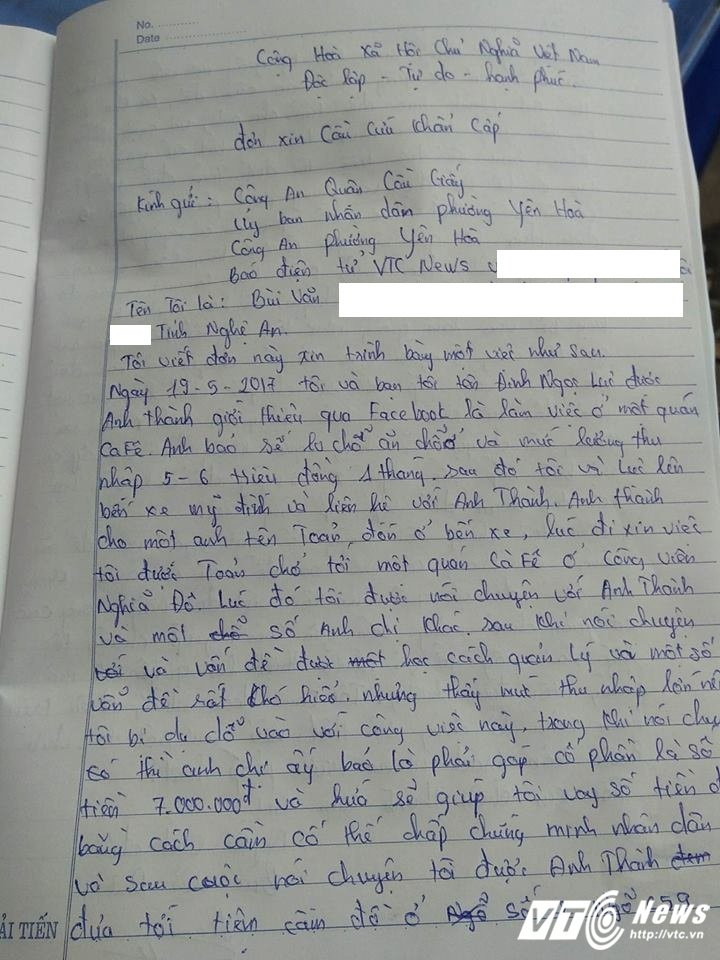 No. ....................
Date ....................
Cộng Hoà Xã Hội Chủ Nghĩa Việt Nam
Độc lập - Tự do - hạnh phúc.
đơn xin Cầu Cứu Khẩn Cấp
Kính gửi: Công An Quận Cầu Giấy
Uỷ ban nhân dân phường Yên Hoà
Công An phường Yên Hoà
Báo điện tử VTC News
Tên Tôi là: Bùi Văn
Tỉnh Nghệ An.
Tôi viết đơn này xin trình bày một việc như sau.
Ngày 19-5-2017 tôi và bạn tôi tên Đinh Ngọc Lực được
Anh thành giới thiệu qua Facebook là làm việc ở một quán
CaFê. Anh bảo sẽ lo chỗ ăn chỗ ở và mức lương thu
nhập 5-6 triệu đồng 1 tháng. sau đó tôi và Lực lên
bến xe mỹ đình và liên hệ với Anh Thành. Anh thành
cho một anh tên Toản, đón ở bến xe, lúc đi xin việc
tôi được Toản chở tới một quán Cà Fê ở Công viên
Nghĩa Đô. Lúc đó tôi được nói chuyện với Anh Thành
và một số Anh chị khác. sau khi nói chuyện
và vấn đề được học cách quản lý và một số
vấn đề rất khó hiểu. nhưng thấy mức thu nhập lớn nê
tôi bị dụ dỗ vào với công việc này, trong khi nói chu
có thì anh chị ấy bảo là phải góp cổ phần là số
tiền 7.000.000đ và hứa sẽ giúp tôi vay số tiền đ
bằng cách cầm cố thế chấp chứng minh nhân dân
và sau cuộc nói chuyện tôi được Anh Thành
đưa tới tiệm cầm đồ ở số 159
ẢI TIẾN
VTC News
http://vtc.vn